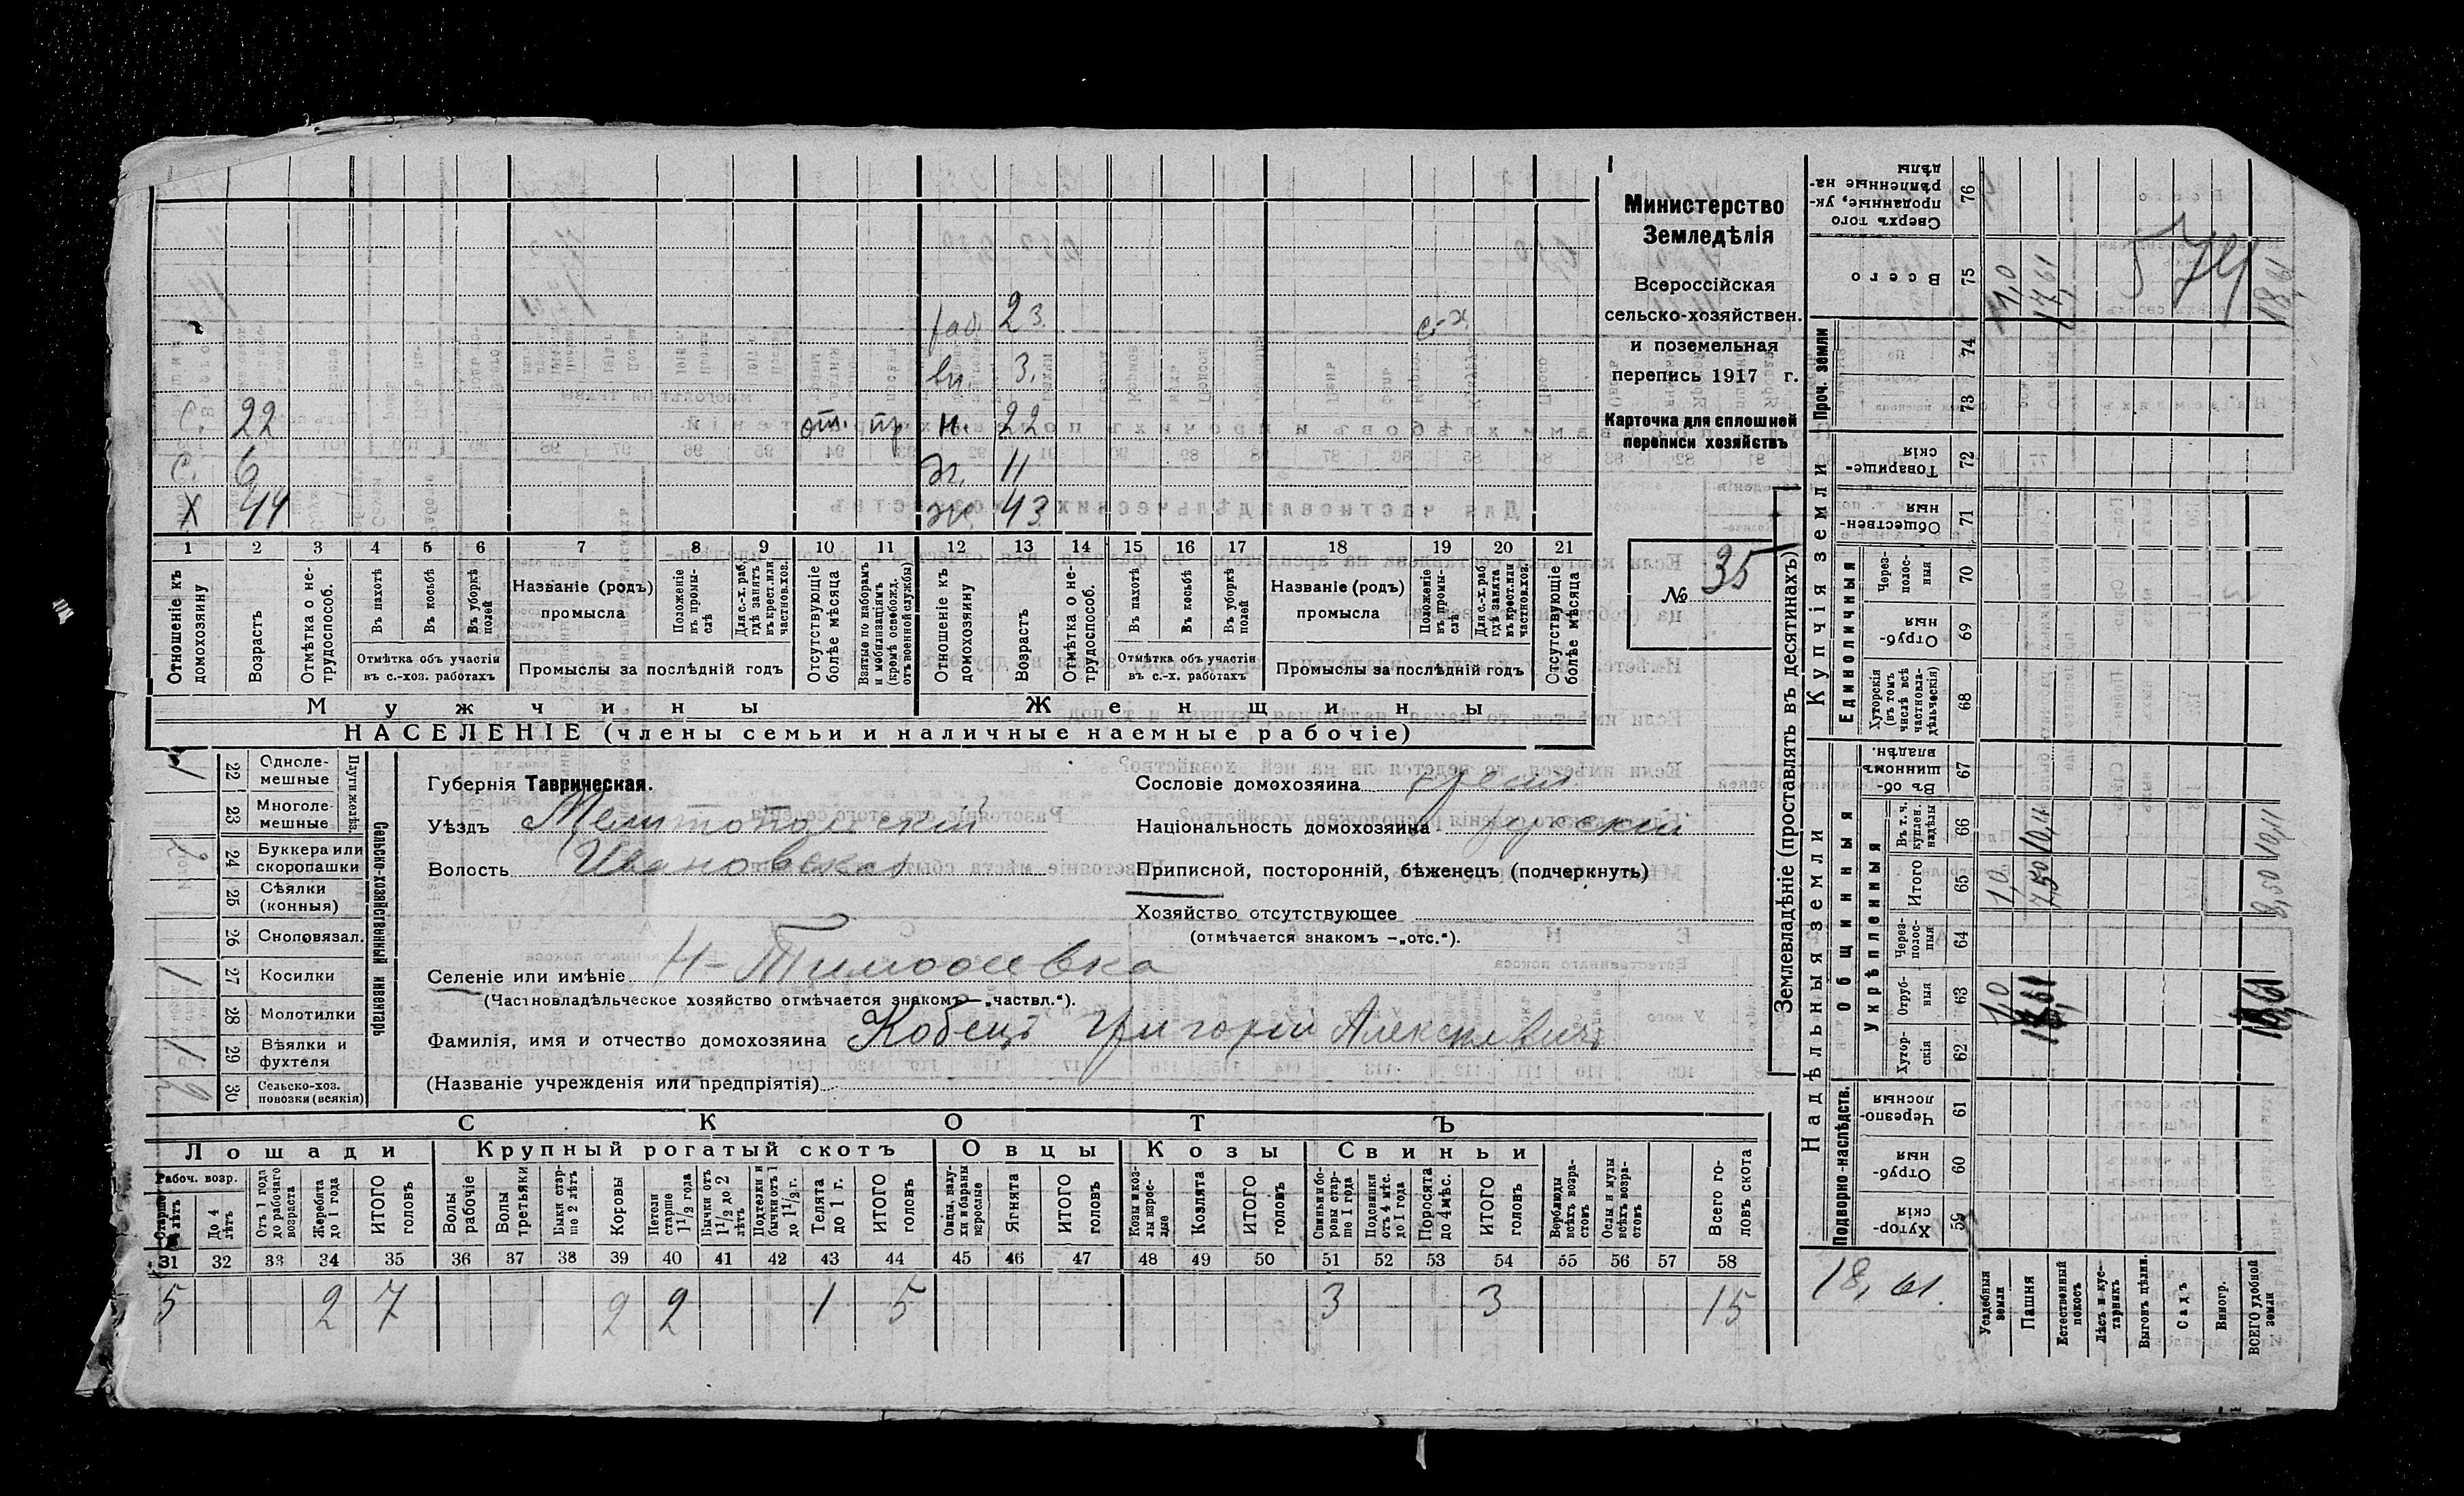 Министерство
Земледѣлія
Всероссійская
сельско-хозяйствен.
и поземельная
перепись 1917 г.
Карточка для сплошной
переписи хозяйствъ
№ 35
раб. 23 с-х
вн. 3.
С. 22 от. пр н. 22
С. 6 дг. 11
Х 44 ж 43
1 2 3 4 5 6 7 8 9 10 11 12 13 14 15 16 17 18 19 20 21
Отношеніе къ домохозяину
Возрастъ
Отмѣтка о не-трудоспособ.
Въ пахотѣ
Въ косьбѣ
Въ уборкѣ полей
Отмѣтка объ участіи въ с.-хоз. работахъ
Названіе (родъ) промысла
Положеніе въ промы-слѣ
Для с.-х. раб. гдѣ занятъ въ крест. или частновл. хоз.
Промыслы за послѣдній годъ
Отсутствующіе болѣе мѣсяца
Взятые по наборамъ и мобилизаціямъ (кромѣ освобожд. отъ военной службы)
Отношеніе къ домохозяину
Возрастъ
Отмѣтка о не-трудоспособ.
Въ пахотѣ
Въ косьбѣ
Въ уборкѣ полей
Отмѣтка объ участіи въ с.-х. работахъ
Названіе (родъ) промысла
Положеніе въ промы-слѣ
Для с.-х. раб. гдѣ занята въ крест. или частнов. хоз.
Промыслы за послѣдній годъ
Отсутствующіе болѣе мѣсяца
Мужчины Женщины
НАСЕЛЕНІЕ (члены семьи и наличные наемные рабочіе)
Сельско-хозяйственный инвентарь
Плуги желѣз.
22 Одноле-мешные 1
23 Многоле-мешные
24 Буккера или скоропашки 2
25 Сѣялки (конныя)
26 Сноповязал.
27 Косилки 1
28 Молотилки
29 Вѣялки и фухтеля 1
30 Сельско-хоз. повозки (всякія) 2
Губернія Таврическая.
Уѣздъ Мелитопольскій
Волость Ивановская
Сословіе домохозяина крест.
Національность домохозяина русскій
Приписной, посторонній, бѣженецъ (подчеркнуть)
Хозяйство отсутствующее
(отмѣчается знакомъ —„отс.“).
Селеніе или имѣніе Н-Тимофеевка
(Частновладѣльческое хозяйство отмѣчается знакомъ — „частвл.“).
Фамилія, имя и отчество домохозяина Кобецъ Григорій Алексѣевичъ
(Названіе учрежденія или предпріятія)
СКОТЪ
Лошади Крупный рогатый скотъ Овцы Козы Свиньи
Рабоч. возр.
Старше 4 лѣтъ
До 4 лѣтъ
Отъ 1 года до рабочаго возраста
Жеребята до 1 года
ИТОГО головъ
Волы рабочіе
Волы третьяки
Быки стар-ше 2 лѣтъ
Коровы
Нетели старше 1 1/2 года
Бычки отъ 1 1/2 до 2 лѣтъ
Подтелки и бычки отъ 1 до 1 1/2 г.
Телята до 1 г.
ИТОГО головъ
Овцы, валу-хи и бараны взрослые
Ягнята
ИТОГО головъ
Козы и коз-лы взрос-лые
Козлята
ИТОГО головъ
Свиньи и бо-ровы стар-ше 1 года
Подсвинки отъ 4 мѣс. до 1 года
Поросята до 4 мѣс.
ИТОГО головъ
Верблюды всѣхъ возра-стовъ
Ослы и мулы всѣхъ возра-стовъ
Всего го-ловъ скота
31 32 33 34 35 36 37 38 39 40 41 42 43 44 45 46 47 48 49 50 51 52 53 54 55 56 57 58
5 2 7 2 2 1 5 3 3 15
Землевладѣніе (проставлять въ десятинахъ)
Купчія земли
Надѣльныя земли
Проч. земли
Единоличныя
Общинныя
Укрѣпленныя
Подворно-наслѣдств.
Сверхъ того проданные, ук-рѣпленные на-дѣлы 76
Всего 75 1,0 17,61 18,61
574
74
73
Товарище-скія 72
Обществен-ныя 71
Через-полос-ныя 70
Отруб-ныя 69
Хуторскія (въ томъ числѣ всѣ частновла-дѣльческія) 68
Въ об-щинномъ владѣн. 67
Въ т. ч. куплен. надѣлы 66 10,11 10,11
Итого 65 1,0 7,50 8,50
Через-полос-ныя 64
Отруб-ныя 63 1,0
Хутор-скія 62
Черезпо-лосныя 61
Отруб-ныя 60
Хутор-скія 59
18,61.
Усадебныя земли
Пашня
Естественный покосъ
Лѣсъ и кус-тарникъ
Выгонъ цѣлин.
Садъ
Виногр.
ВСЕГО удобной земли